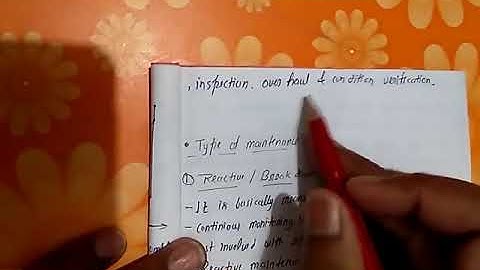 , inspection. over haul & condition verification.
• Type of maintenance
① Reactive / Break
- It is basically
- Continious monitoring
involved with
Reactive mainten